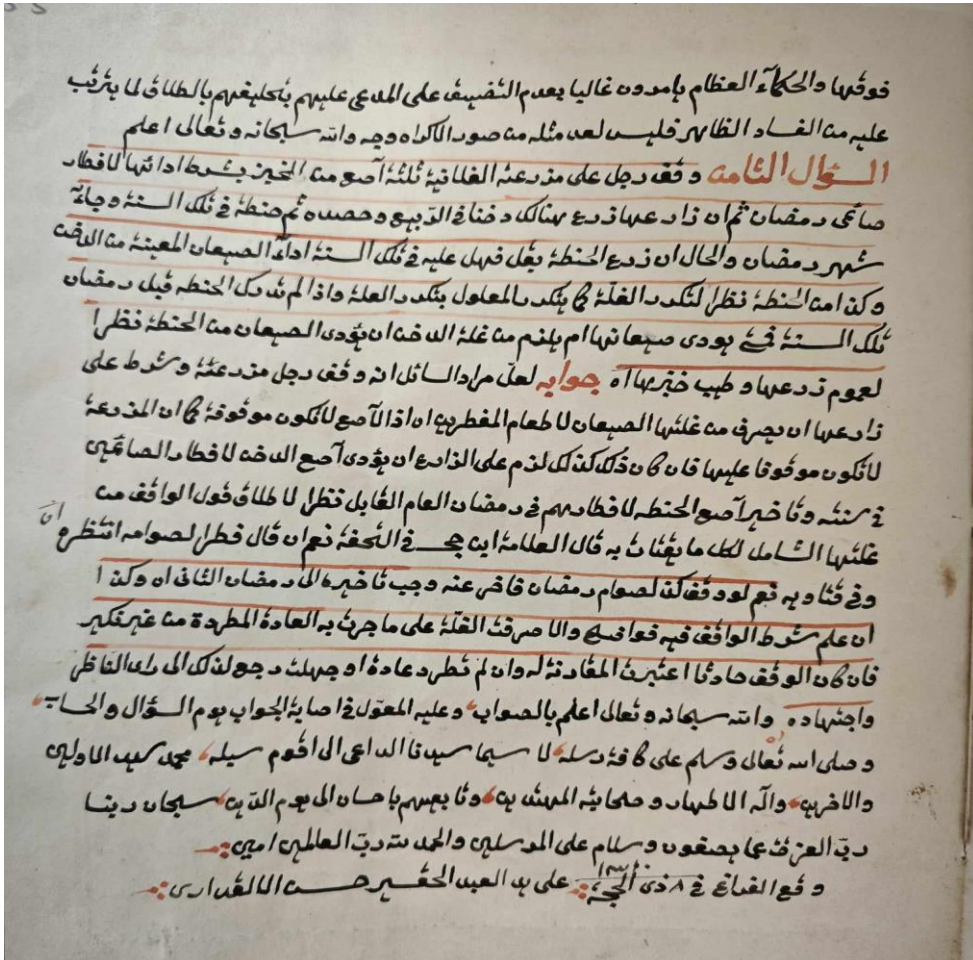 فوقها والحكماء العظام يامرون غاليا بعدم التضييق على المدعى عليهم بتحليفهم بالطلاق لما يترتب
عليه من الفساد الظاهر فليس لعد مثله من صور الاكراه وجه والله سبحانه وتعالى اعلم
السؤال الثامن وقف رجل على مزرعته الفلانية ثلثة آصع من الخبز بشرط ادائها لافطار
صائمى رمضان ثم ان زارعها زرع هنالك دخنا فى الربيع وحصده ثم حنطة فى تلك السنة وجاء
شهر رمضان والحال ان زرع الحنطة بقل فهل عليه فى تلك السنة اداء الصيعان المعينة من الدخن
وكذا من الحنطة نظرا لتكرر الغلة كما يتكرر المعلول بتكرر العلة واذا لم تدرك الحنطه قبل رمضان
تلك السنة فمتى يودى صيعانها ام يلزم من غلة الدخن ان يؤدى الصيعان من الحنطة نظرا
لعموم زرعها وطيب خبزها اه جوابه لعل مراد السائل انه وقف رجل مزرعته وشرط على
زارعها ان يصرف من غلتها الصيعان لاطعام المفطرين اذ الآصع لا تكون موقوفة كما ان المزرعة
لا تكون موقوفا عليها فان كان ذلك كذلك لزم على الزارع ان يؤدى آصع الدخن لافطار الصائمين
فى سنته وتاخير آصع الحنطه لافطارهم فى رمضان العام القابل نظرا لاطلاق قول الواقف من
غلتها الشامل لكل ما يقتات به قال العلامة ابن حجر فى التحفة نعم ان قال فطرا لصوامه انتظره اه
وفى فتاويه نعم لو وقف كذا لصوام رمضان فاخر عنه وجب تاخيره الى رمضان الثانى ان وكذا
ان علم شرط الواقف فيه فواضح والا صرفت الغلة على ما جرت به العادة المطردة من غير نكير
فان كان الوقف حادثا اعتبرت المقارنة له وان لم تطرد عادة او جهلت رجع لذلك الى راى الناظر
واجتهاده والله سبحانه وتعالى اعلم بالصواب وعليه المعول فى اصابة الجواب يوم السؤال والحساب
وصلى الله تعالى وسلم على كافة رسله لا سيما سيدنا الداعى الى اقوم سبله محمد سيد الاولين
والاخرين وآله الاطهار وصحابته المهتدين وتابعيهم باحسان الى يوم الدين سبحان ربنا
رب العزت عما يصفون وسلام على المرسلين والحمد لله رب العالمين امين
وقع الفراغ فى ٨ ذى الحجة على يد العبد الحقير حسن الالقدارى